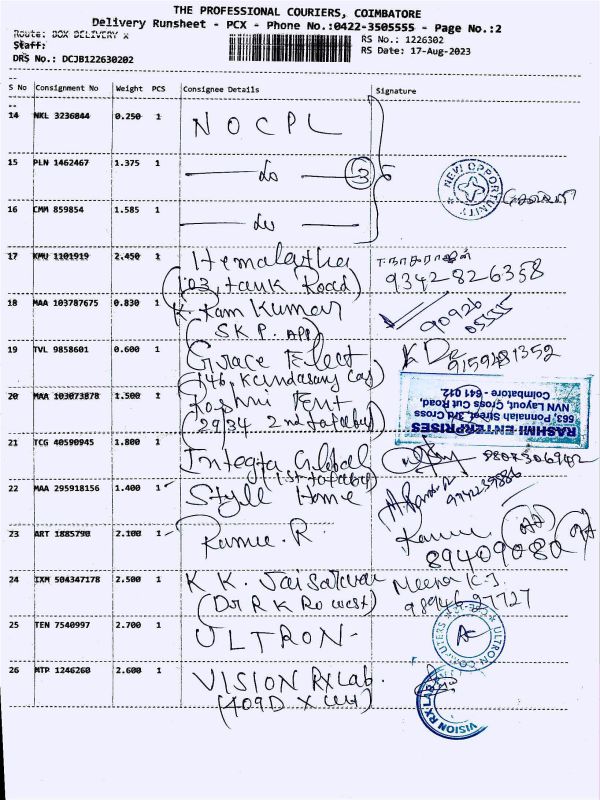 THE PROFESSIONAL COURIERS, COIMBATORE
Delivery Runsheet - PCX - Phone No.:0422-3505555 - Page No.:2
Route: BOX DELIVERY X
RS No.: 1226302
Staff:
RS Date: 17-Aug-2023
DRS No.: DCJB122630202
S No Consignment No Weight PCS Consignee Details Signature
14 NKL 3236844 0.250 1 NOCPL
15 PLN 1462467 1.375 1 do 3
NEW OPPORTUNITY
16 CMM 859854 1.585 1 do
17 KMU 1101919 2.450 1 Hemalatha
(103, tank Road) 9342826358
18 MAA 103787675 0.830 1 K. Ram Kumar
(SKP. APP) 90926
05555
19 TVL 9858601 0.600 1 Grace Elect
9159481352
20 MAA 103073878 1.500 1
(2934 2nd
RASHMI ENTERPRISES
663, Ponnaiah Street, 3rd Cross
NVN Layout, Cross Cut Road,
Coimbatore - 641 012.
21 TCG 40590945 1.800 1 Integra Global
22 MAA 295918156 1.400 1 Style Home
23 ART 1885790 2.100 1 Ramu. R
89409080
24 IXM 504347178 2.500 1 K K. Meena
(Dr R K Ro west) 98946 27727
25 TEN 7540997 2.700 1 ULTRON-
ULTRON COMPUTERS
26 MTP 1246260 2.600 1 VISION RX Lab.
(409 D X cut)
VISION RX LAB